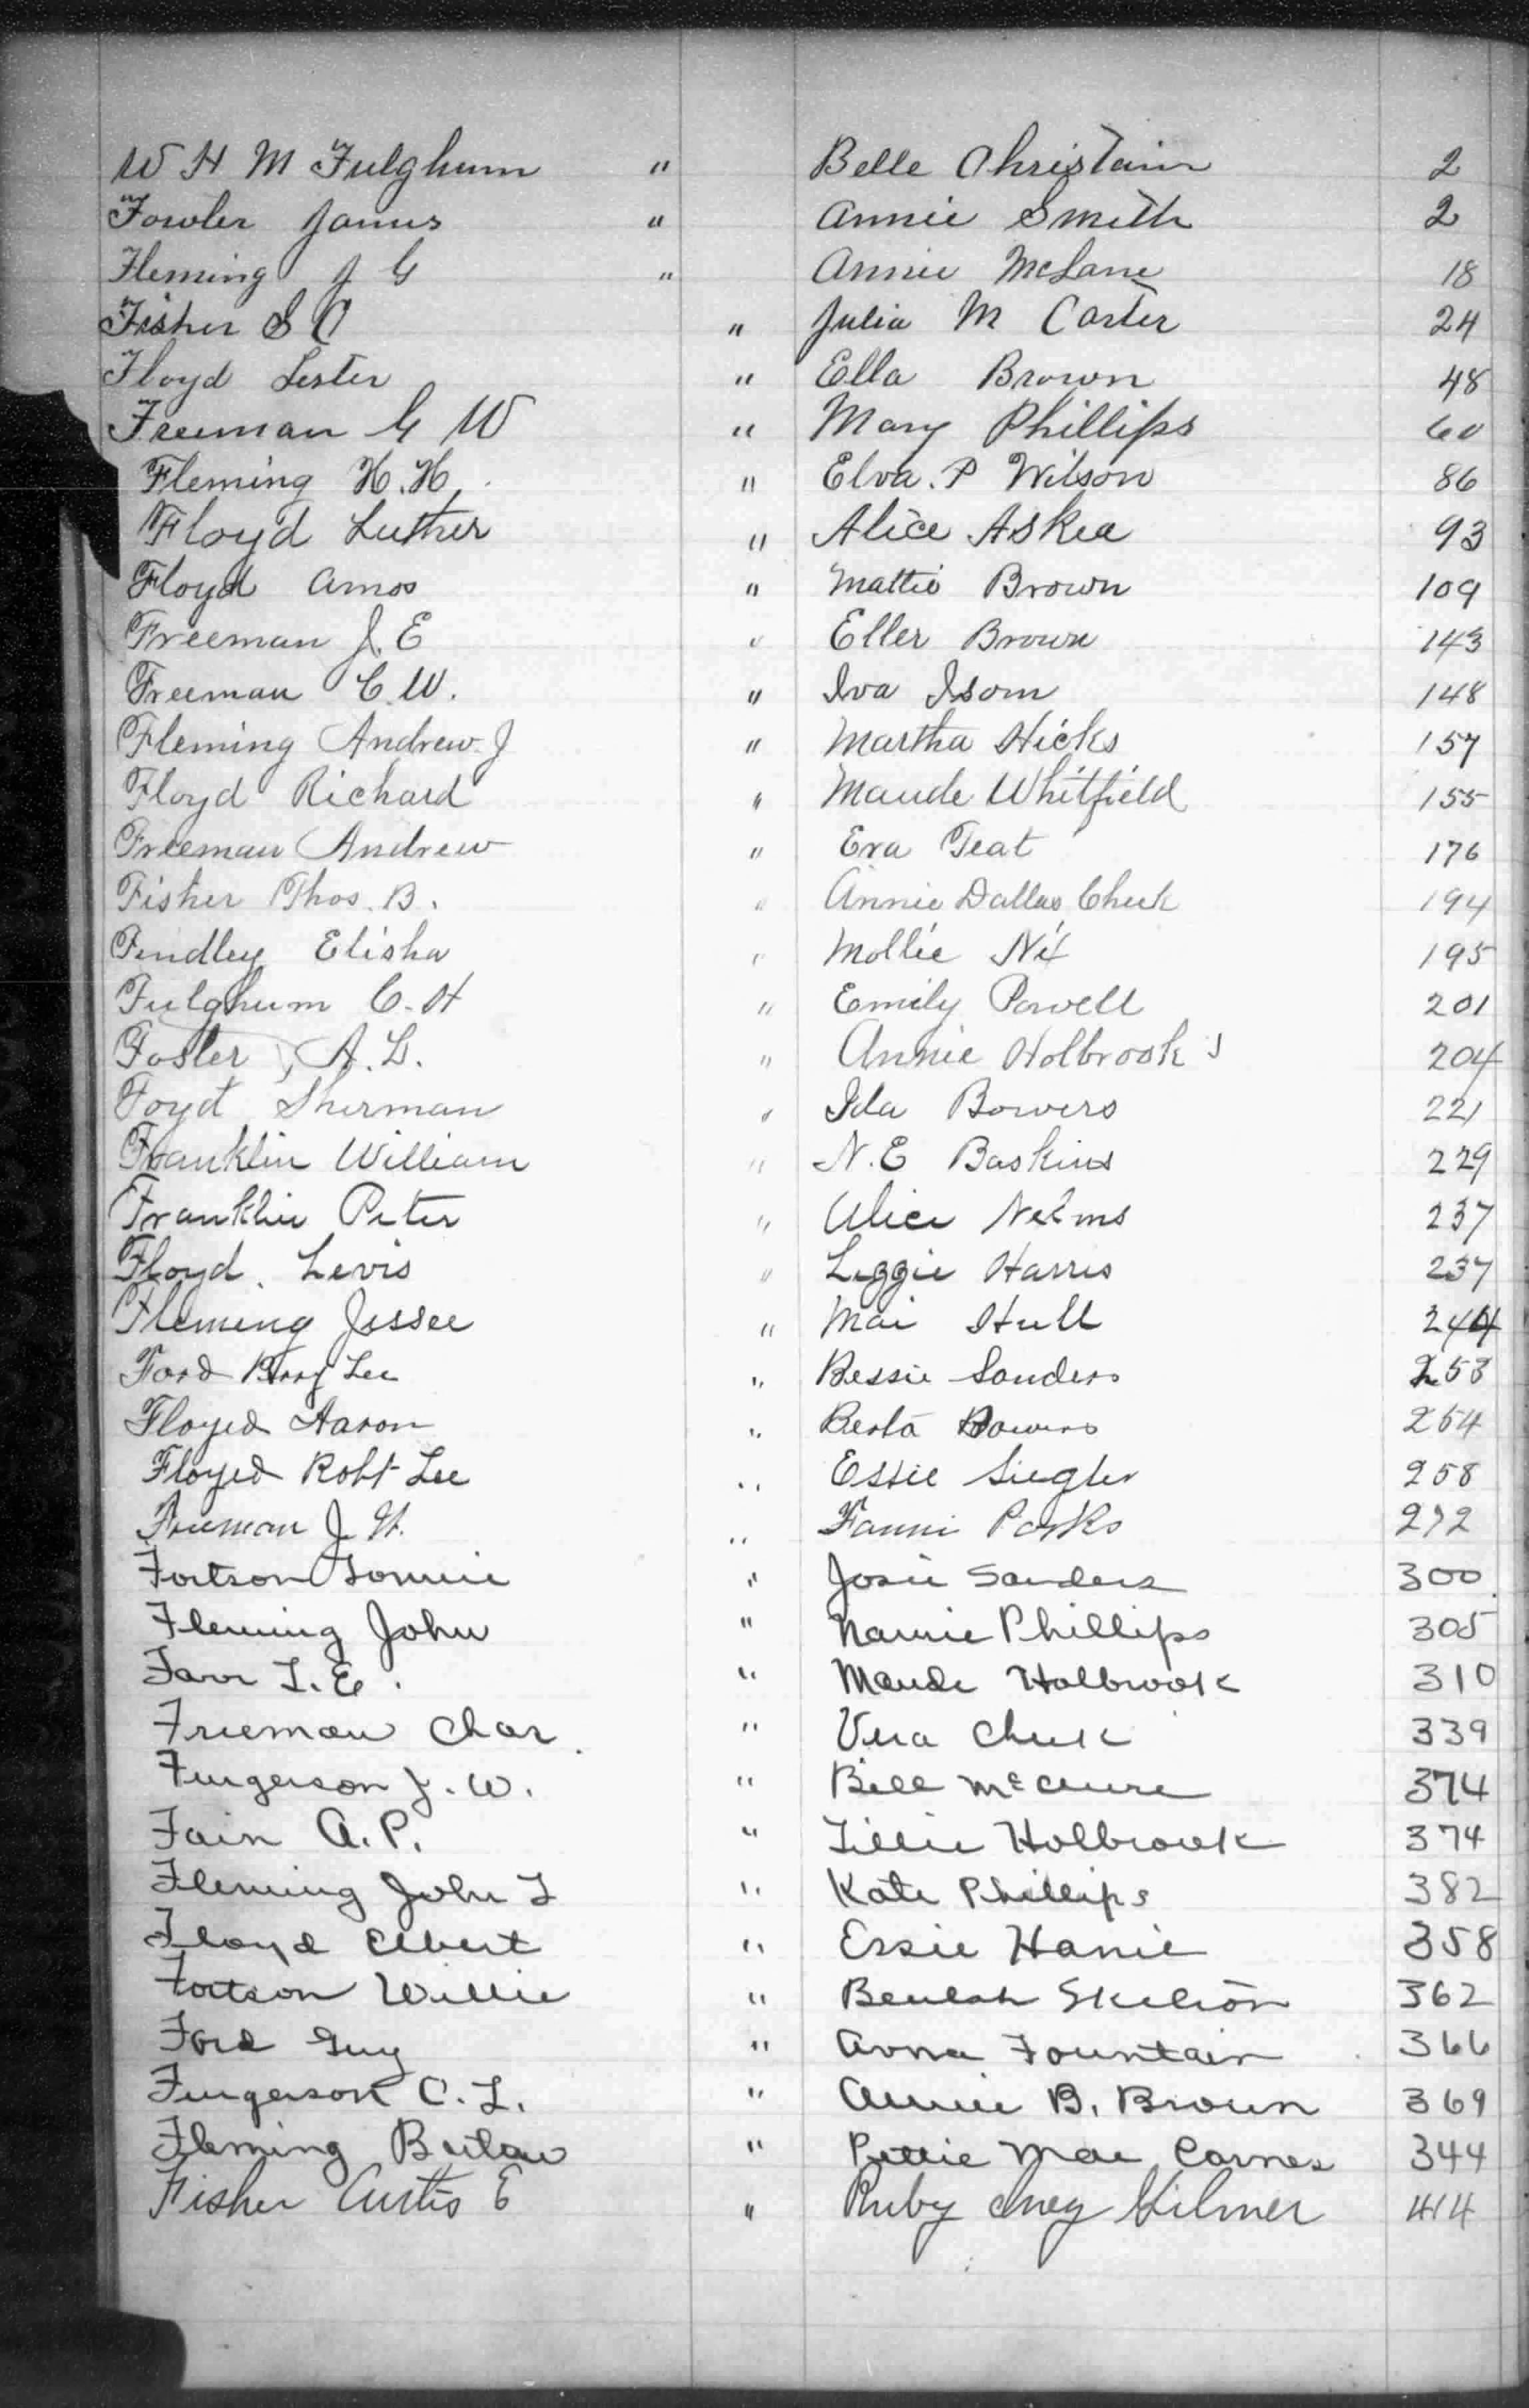 W H M Fulghum " Belle Christain 2
Fowler James " Annie Smith 2
Fleming J G " Annie McLane 18
Fisher S C " Julia M Carter 24
Floyd Lester " Ella Brown 48
Freeman G W " Mary Phillips 60
Fleming H. H. " Elva. P Wilson 86
Floyd Luther " Alice Askea 93
Floyd Amos " Mattie Brown 109
Freeman J. E " Eller Brown 143
Freeman C. W. " Iva Isom 148
Fleming Andrew. J " Martha Hicks 157
Floyd Richard " Maude Whitfield 155
Freeman Andrew " Eva Teat 176
Fisher Thos. B. " Annie Dallas Cheek 194
Findley Elisha " Mollie Nix 195
Fulghum C. H " Emily Powell 201
Foster, A. L. " Annie Holbrooks 204
Foyd Sherman " Ida Bowers 221
Franklin William " N. E Baskins 229
Franklin Peter " Alice Nelms 237
Floyd. Levis " Lizzie Harris 237
Fleming Jessee " Mai Hull 244
Ford Lee " Bessie Sanders 253
Floyed Aaron " Berta Bowers 254
Floyed Robt Lee " Essie Siegler 258
Freeman J. H. " Fanni Parks 272
Fortson Tommie " Josie Sanders 300
Fleming John " Nannie Phillips 305
Farr L. E. " Maude Holbrook 310
Freeman Chas. " Vera Cheek 339
Furgerson J. W. " Bell McClure 374
Fain A. P. " Lillie Holbrook 374
Fleming John L " Kate Phillips 382
Floyd Elbert " Essie Hanie 358
Fortson Willie " Beulah Skelton 362
Ford Guy " Anna Fountain 366
Furgerson C. L. " Annie B. Brown 369
Fleming " Pettie Mae Carnes 344
Fisher Curtis E " Ruby Inez Gilmer 414